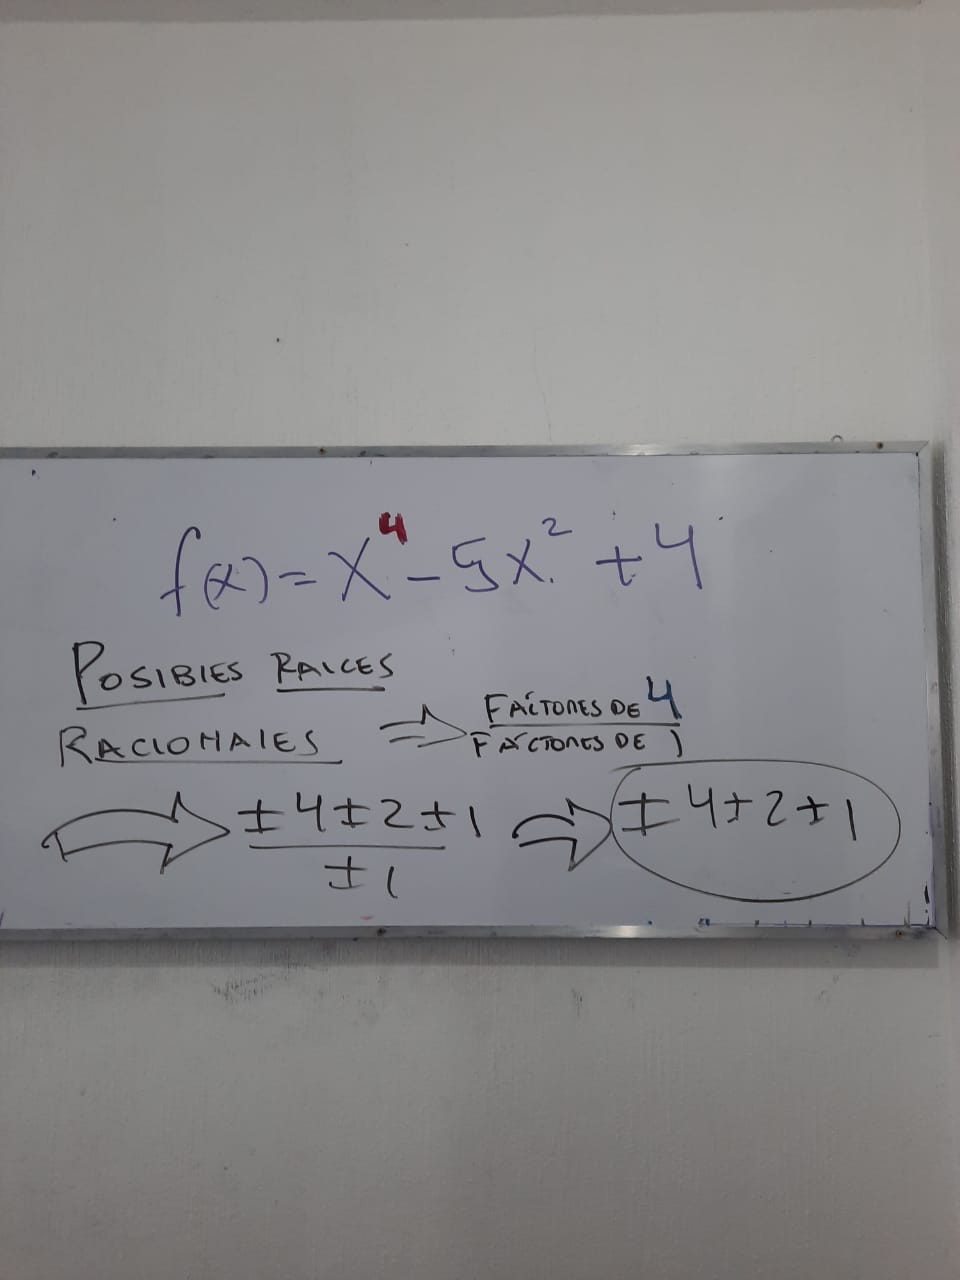 f(x) = x⁴ - 5x² + 4
POSIBLES RAICES
RACIONALES ⇒ FACTORES DE 4
FACTORES DE 1
⇒ ±4 ±2 ±1 ⇒ ±4 ±2 ±1
±1